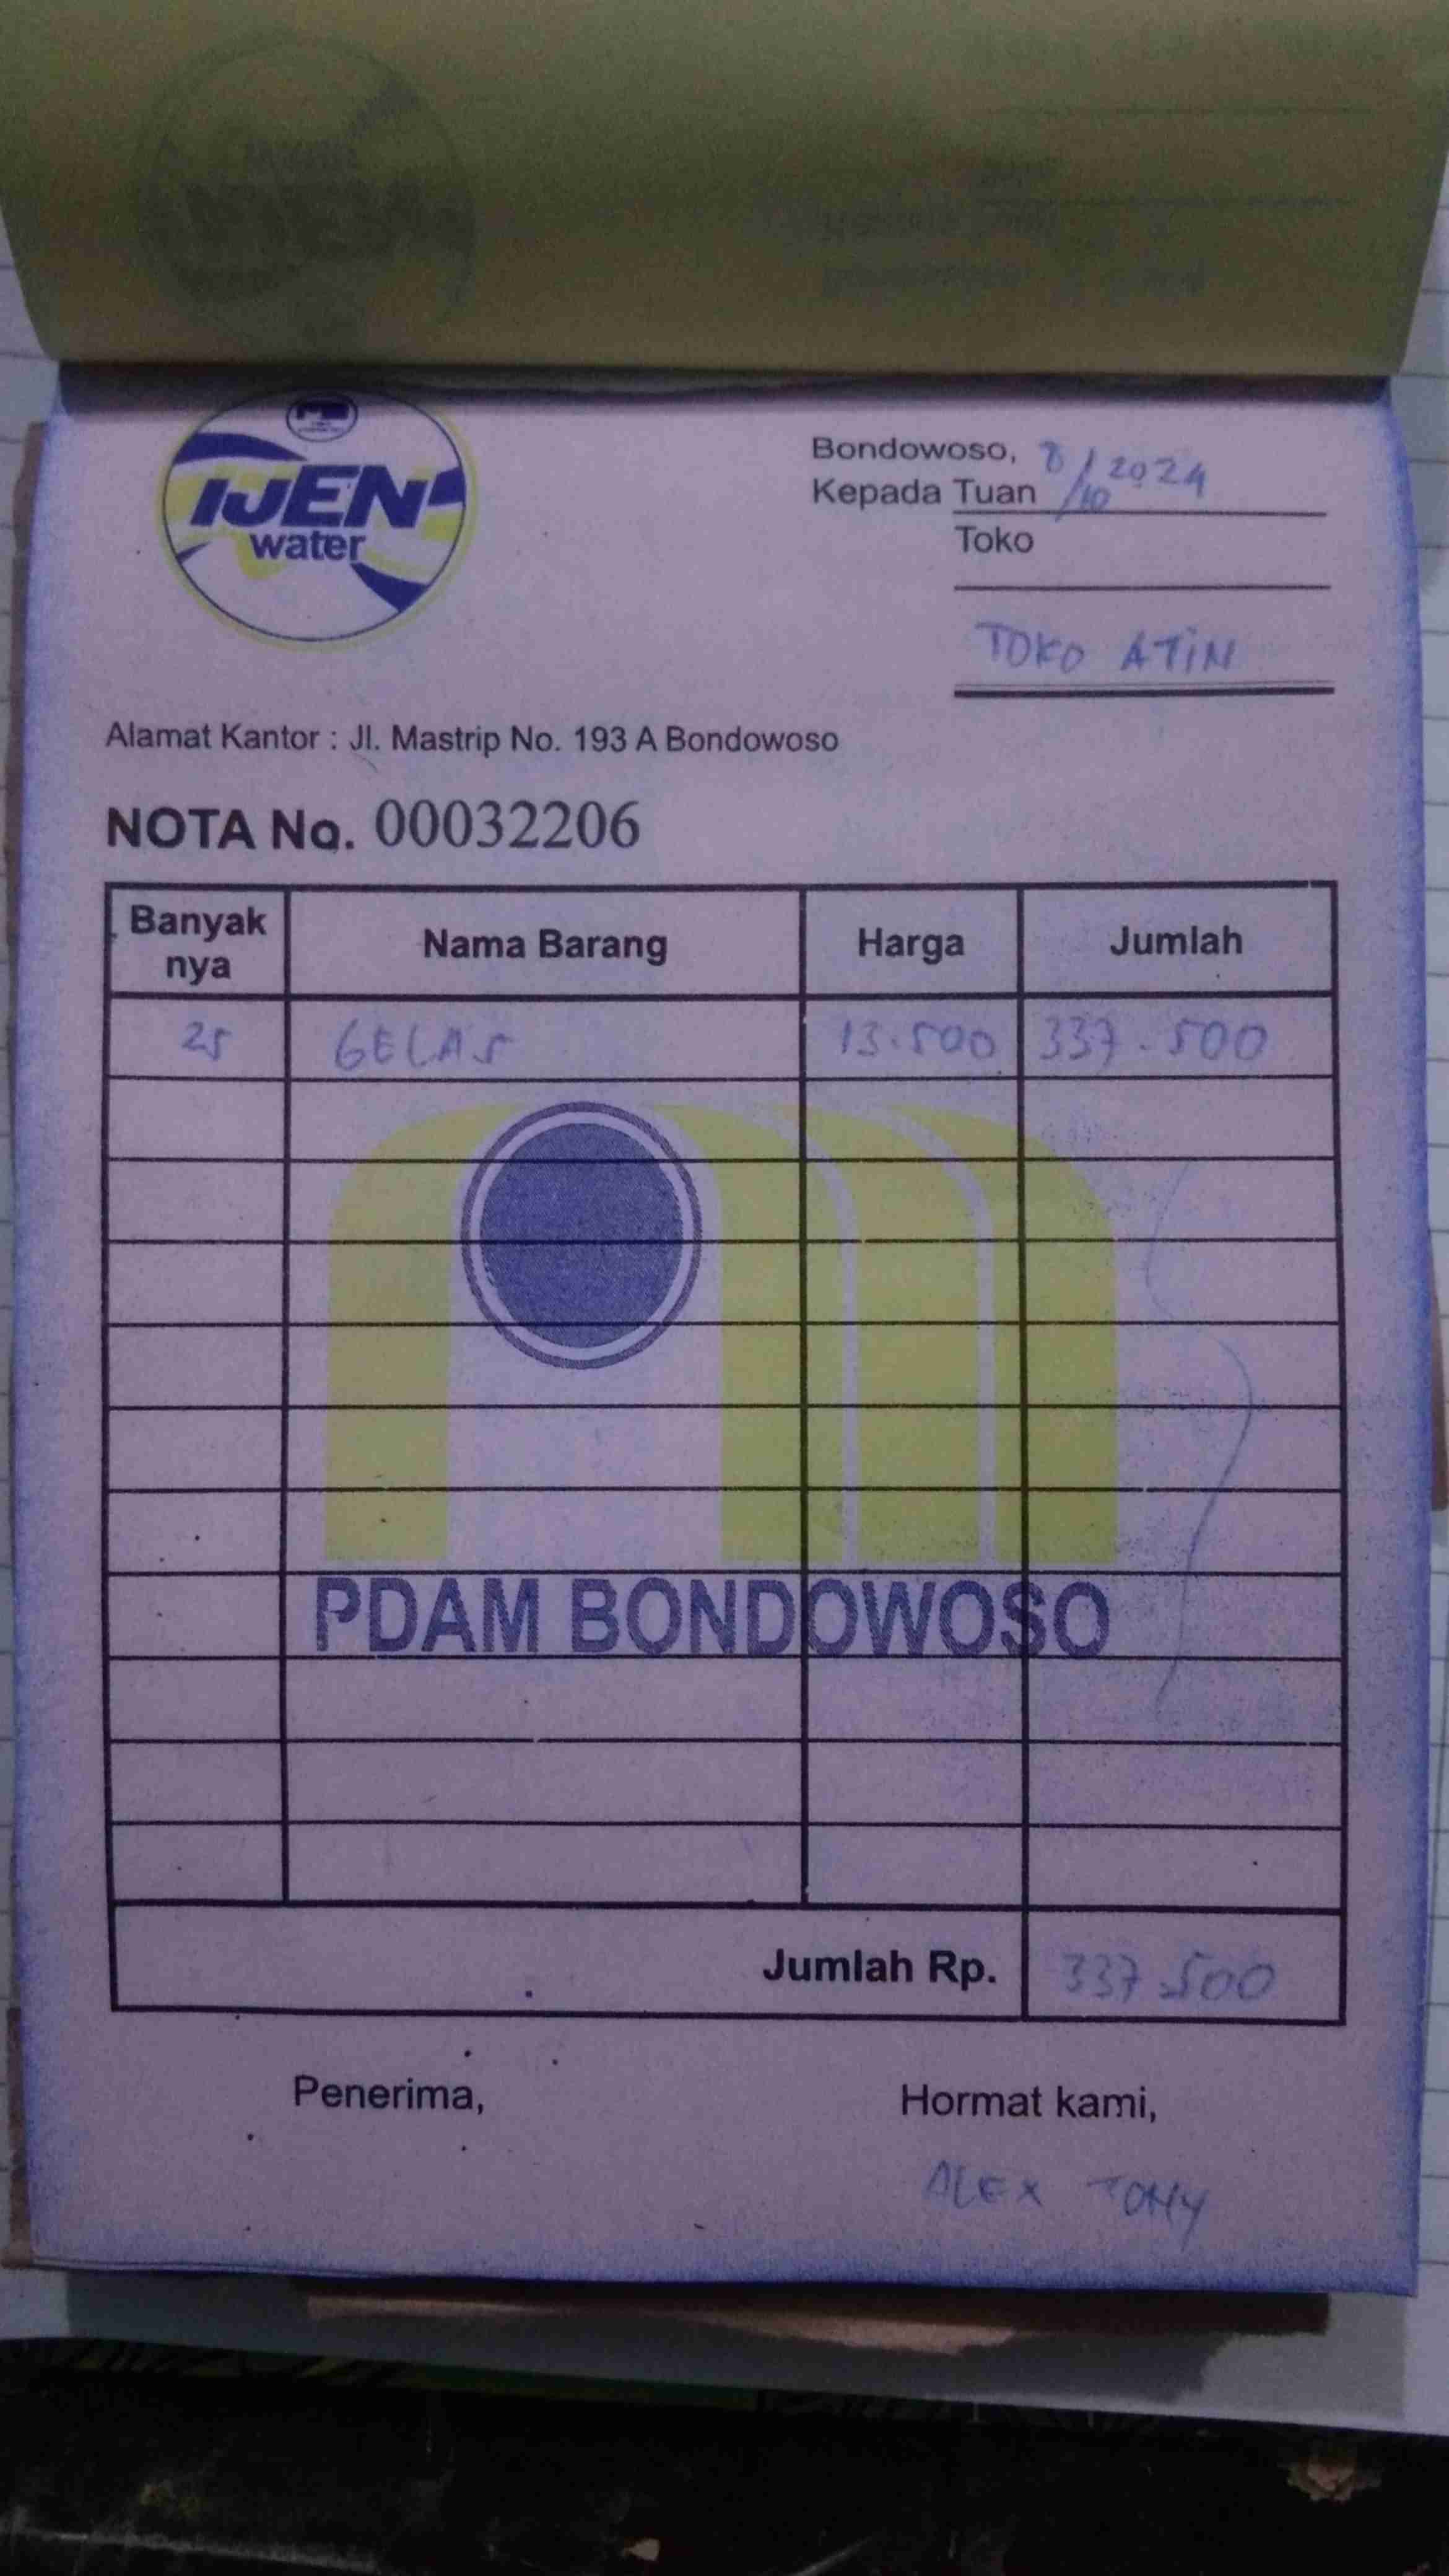 IJEN
water
Bondowoso, 8/10 2024
Kepada Tuan
Toko
TOKO ATIN
Alamat Kantor : Jl. Mastrip No. 193 A Bondowoso
NOTA No. 00032206
Banyak nya Nama Barang Harga Jumlah
25 GELAS 13.500 337.500
PDAM BONDOWOSO
Jumlah Rp. 337.500
Penerima, Hormat kami,
ALEX TONY